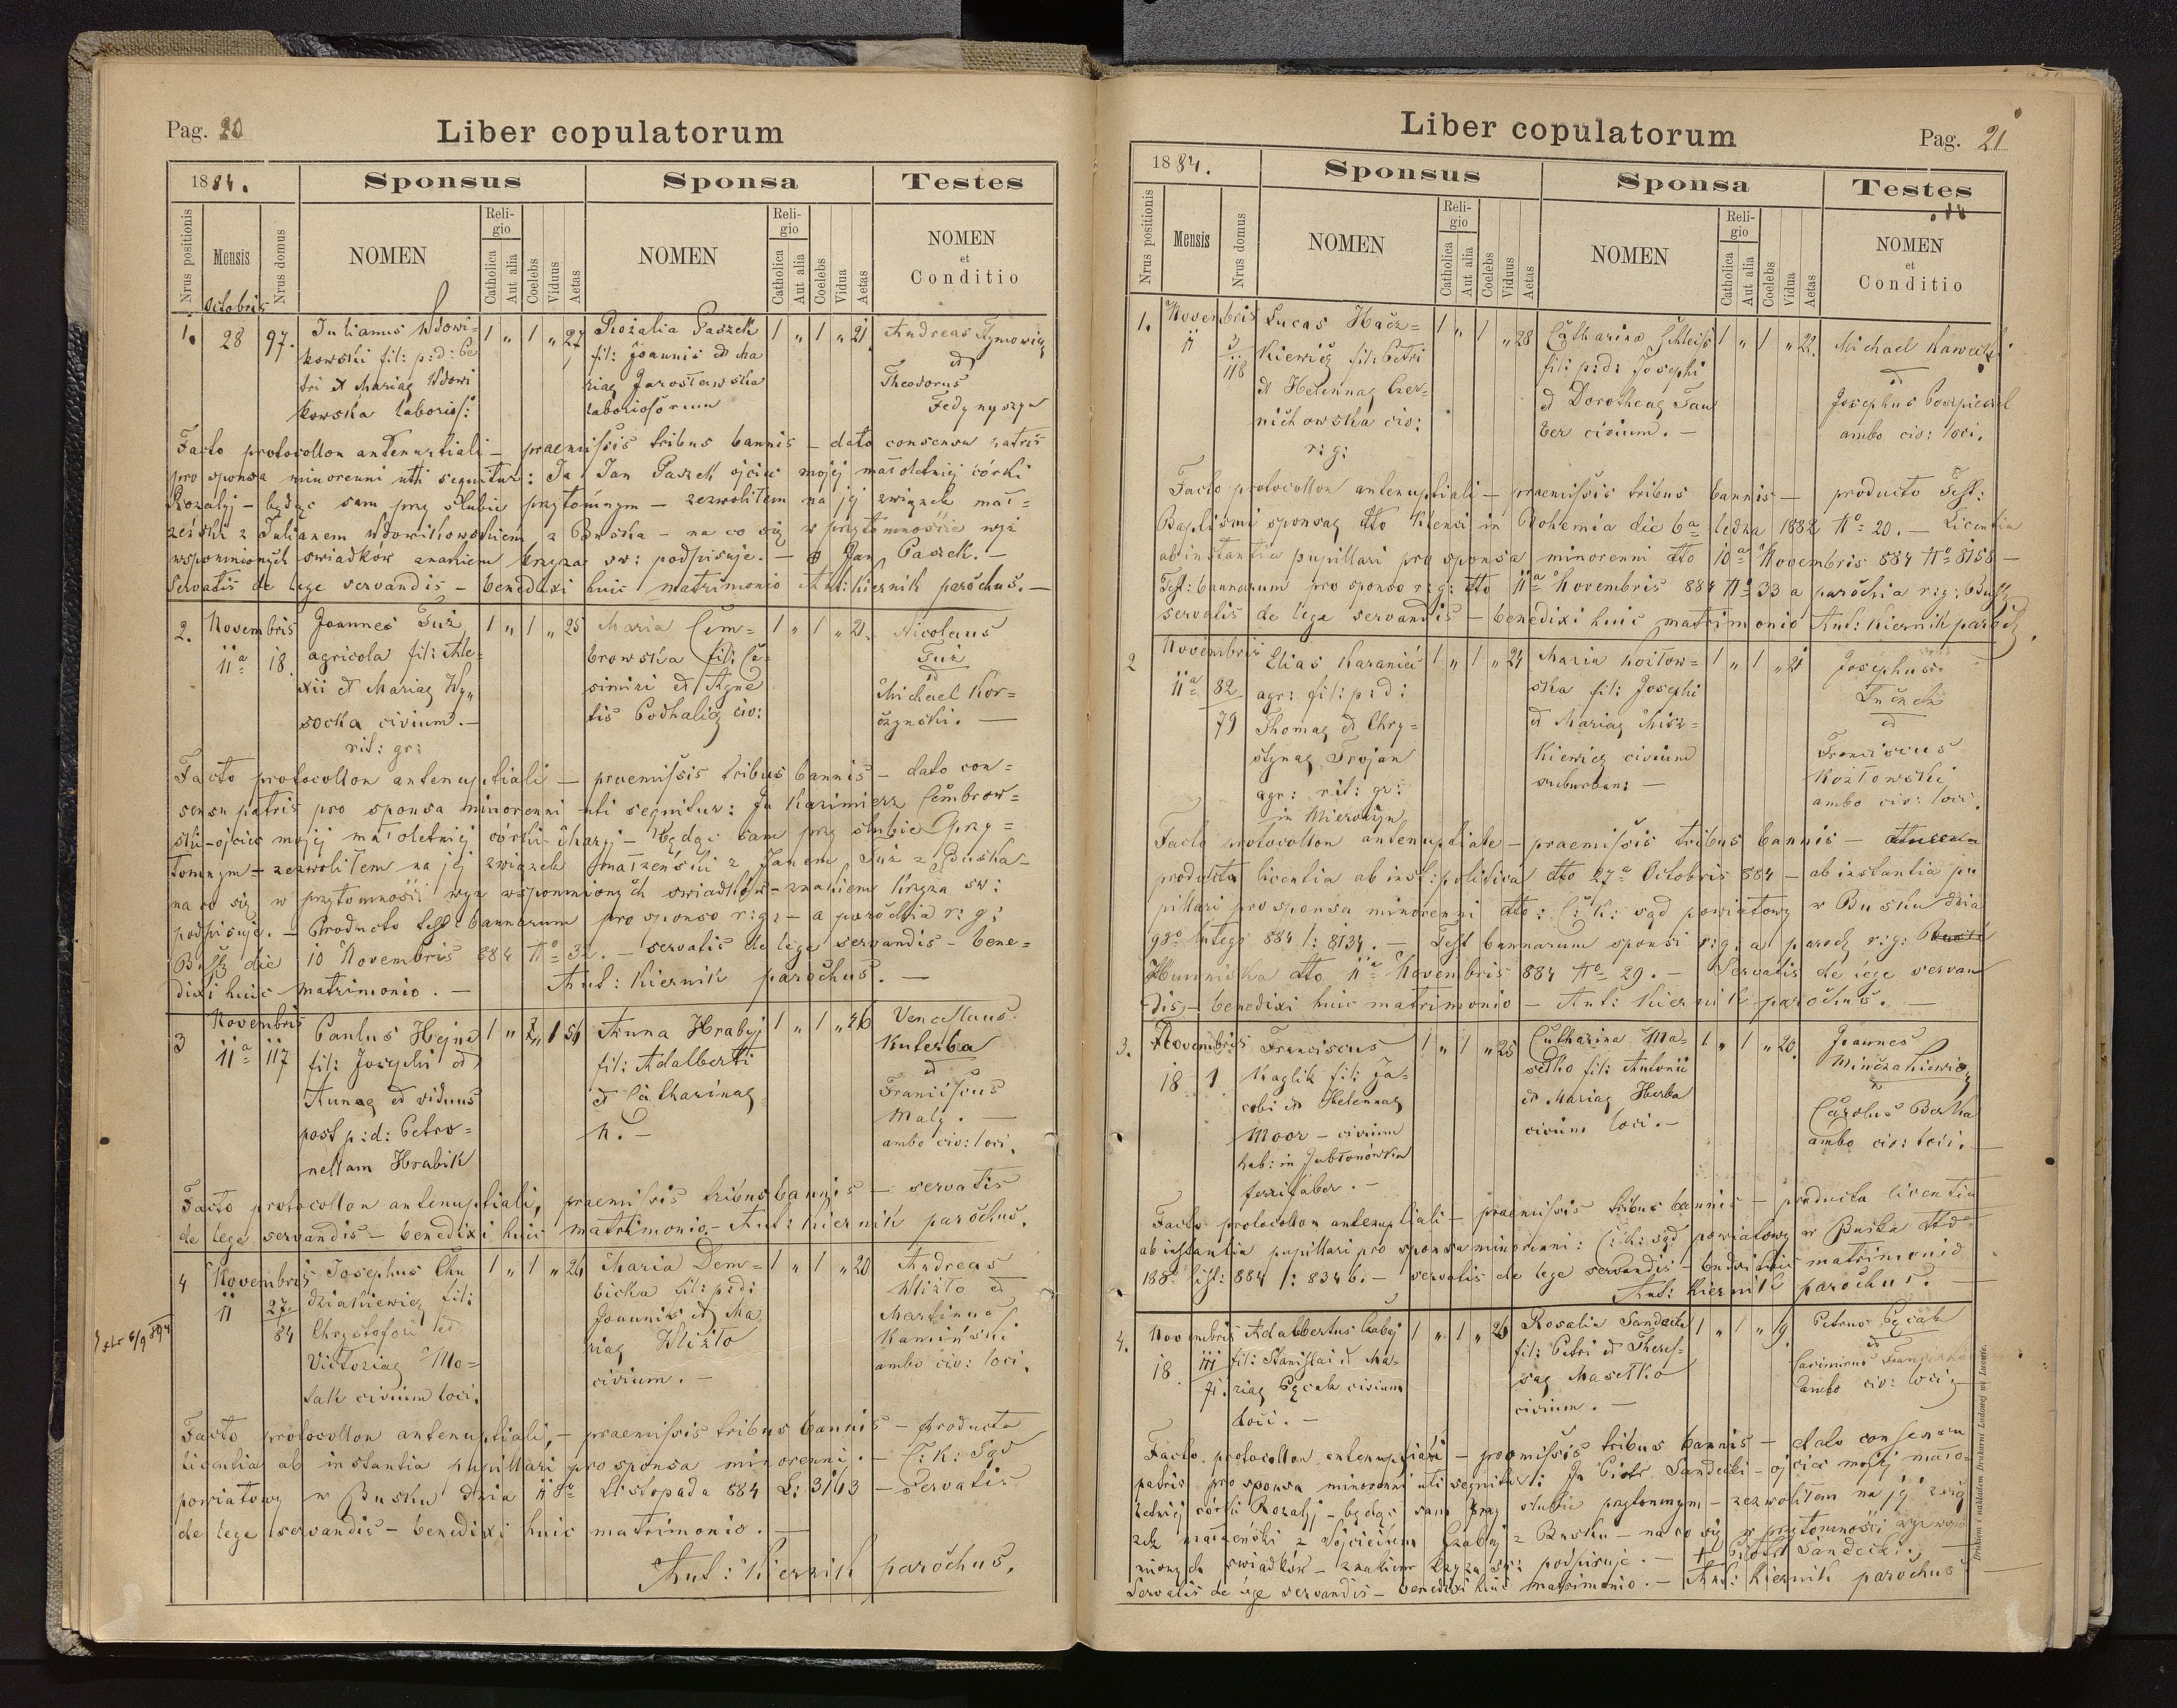 Pag. 20
Liber copulatorum
1884.
Sponsus
Sponsa
Testes
Nrus positionis
Mensis
Nrus domus
NOMEN
Religio
Catholica
Aut alia
Coelebs
Viduus
Aetas
NOMEN
Religio
Catholica
Aut alia
Coelebs
Vidua
Aetas
NOMEN
et
Conditio
Octobris
1. 28 97. Julianus Wdowi= 1 " 1 " 27 Rozalia Paszek 1 " 1 " 21. Andreas
kowski fil: p: d: Pe fil: Joannis et Ma et
tri et Mariae Wdowi riae Jarosławska Theodorus
kowska laborios: laboriosorum Fedynyszyn
Facto protocollon antenuptiali – praemissis tribus bannis – dato consensu patris
pro sponsa minorenni uti sequitur: Ja Jan Paszek ojciec mojej małoletniej córki
Rozalij – będąc sam przy ślubie przytomnym – zezwoliłem na jej związek mał=
zeński z Julianem Wdowikowskiem z Buska – na co się w przytomności wyż
wspomnionych swiadków znakiem krzyza sw: podpisuje. – + Jan Paszek. –
Servatis de lege servandis – benedixi huic matrimonio Ant: Kiernik parochus. –
2. Novembris Joannes Tuż 1 " 1 " 25 Maria Cem= 1 " 1 " 21. Nicolaus
11a 18 agricola fil: Ale= browska fil: Ca= Tuż
xii et Mariae Wy" simiri et Agne et
socka civium. – tis Podhalicz civ: Michael Kor=
rit: gr: czynski. –
Facto protocollon antenuptiali – praemissis tribus bannis – dato con=
sensu patris pro sponsa minorenni uti sequitur: Ja Kazimierz Cembrow=
ski – ojciec mojej małoletniej córki Maryi – będąc sam przy ślubie przy=
tomnym – zezwoliłem na jej związek małżeński z Janem Tuż z Buska –
na co się w przytomności wyz wspomnionych swiadków – znakiem krzyza sw:
podpisuje. – Producto test: bannorum pro sponso r: g: – a parochia r: g:
Busk die 10 Novembris 884 No 32. – servatis de lege servandis – bene=
dixi huic matrimonio. – Ant: Kiernik parochus. –
3 Novembris Paulus Hejne 1 " 1 51 Anna Hrabyj 1 " 1 " 46 Venceslaus
11a 117 fil: Josephi et fil: Adalberti Kuterba
Annae et viduus et Catharinae et
post p: d: Petro= N. – Franciscus
nellam Hrabik Maly. –
ambo civ: loci.
Facto protocollon antenuptiali, praemissis tribus bannis – servatis
de lege servandis – benedixi huic matrimonio. – Ant: Kiernik parochus.
4 Novembris Josephus Chu 1 " 1 " 26 Maria Dem= 1 " 1 " 20 Andreas
11 27 dziakiewicz fil: bicka fil: p: d: Klizto et
84 Chrystofori et Joannis et Ma Martinus
Victoriae Mo= riae Klizto Kaminski
lak civium loci. civium. – ambo civ: loci.
Facto protocollon antenuptiali, – praemissis tribus bannis – producta
licentia ab instantia pupillari pro sponsa minorenni. – C: k: Sąd
powiatowy w Busku dnia 11go Listopada 884 L: 3163 – Servatis
de lege servandis – benedixi huic matrimonio. –
Ant: Kiernik parochus.
Liber copulatorum
Pag. 21
1884.
Sponsus
Sponsa
Testes
Nrus positionis
Mensis
Nrus domus
NOMEN
Religio
Catholica
Aut alia
Coelebs
Viduus
Aetas
NOMEN
Religio
Catholica
Aut alia
Coelebs
Vidua
Aetas
NOMEN
et
Conditio
1. Novembris Lucas Hacz= 1 " 1 " 28 Catharina Schleiss 1 " 1 " 22. Michael Kawecki
11 3 kiewicz fil: Petri fil: p: d: Josephi et
118 et Helennae Czer= et Dorotheae Tau Josephus Pospieszel
nichowska civ: ber civium. – ambo civ: loci.
r: g:
Facto protocollon antenuptiali – praemissis tribus bannis – producto Test:
Baptismi sponsae dto in Bohemia die 6a 1882 No 20. – Licentia
ab instantia pupillari pro sponsa minorenni dto 10a Novembris 884 No 8158 –
Test: bannorum pro sponso r: g: dto 11a Novembris 884 No 33 a parochia r: g: Busk
servatis de lege servandis – benedixi huic matrimonio Ant: Kiernik paroch.
2 Novembris Elias Karanieć 1 " 1 " 24 Maria Kozłow= 1 " 1 " 21 Josephus
11a 82 agr: fil: p: d: ska fil: Josephi
79 Thomae et Chry= et Mariae Misz= et
stynae Trojan kiewicz civium Franciscus
agr: rit: gr: suburban: – Kozłowski
in ambo civ: loci.
Facto protocollon antenuptiale – praemissis tribus bannis –
producta licentia ab inst: politica dto 27a Octobris 884 – ab instantia pu
pillari pro sponsa minorenni dto: C: k: sąd powiatowy w Busku dnia
9go lutego 884 l: 8134. – Test bannorum sponsi r: g: a paroch r: g:
Humniska dto 11a Novembris 884 No 29. – Servatis de lege servan
dis – benedixi huic matrimonio – Ant: Kiernik parochus. –
3. Novembris Franciscus 1 " 1 " 25 Catharina Ma= 1 " 1 " 20. Joannes
18 1 Kaglik fil: Ja= setko fil: Antonii Minczakiewicz
cobi et Helennae et Mariae Herba et
Moor – civium civium loci. – Carolus Berka
hab: in Jabłonówka ambo civ: loci. –
ferrifaber. –
Facto protocollon antenuptiali – praemissis tribus bannis – producta licentia
ab instantia pupillari pro sponsa minorenni: C: k: sąd powiatowy w Busku dto
18go list: 884 l: 8346. – servatis de lege servandis – bndxi huic matrimonio
Ant: Kiernik parochus. –
4. Novembris Adalbertus Czabaj 1 " 1 " 26 Rosalia Sandecka 1 " 1 " 19. Petrus Pęcak
18 111 fil: Stanislai et Ma= fil: Petri et Theres= et
71. riae Pęcak civium sae Masetko Casimirus
loci. – civium. – ambo civ: loci
Facto protocollon antenuptiali – praemissis tribus bannis – dato consensu
patris pro sponsa minorenni uti sequitur: Ja Piotr Sandecki – ojciec mojej mało=
letniej córki Rozalij – będąc sam przy slubie przytomnym – zezwoliłem na jej zwią
zek małżeński z Wojciechem Czabaj z Buska – na co się w przytomności wyz wspo
mionych swiadków – znakiem krzyza sw: podpisuje. – + Piotr Sandecki. –
Servatis de lege servandis – benedixi huic matrimonio. – Ant: Kiernik parochus
Drukiem i nakładem Drukarni Ludowej we Lwowie.